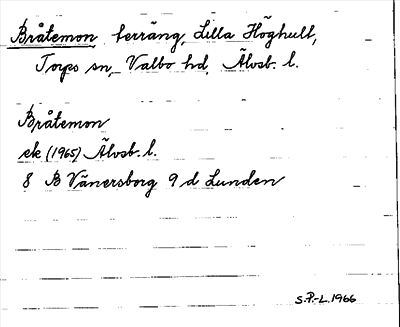 Bråtemon, terräng, Lilla Höghult,
Torps sn, Valbo hd, Älvsb. l.
Bråtemon
ek (1965) Älvsb. l.
8 B Vänersborg 9 d Lunden
S.P.-L. 1966